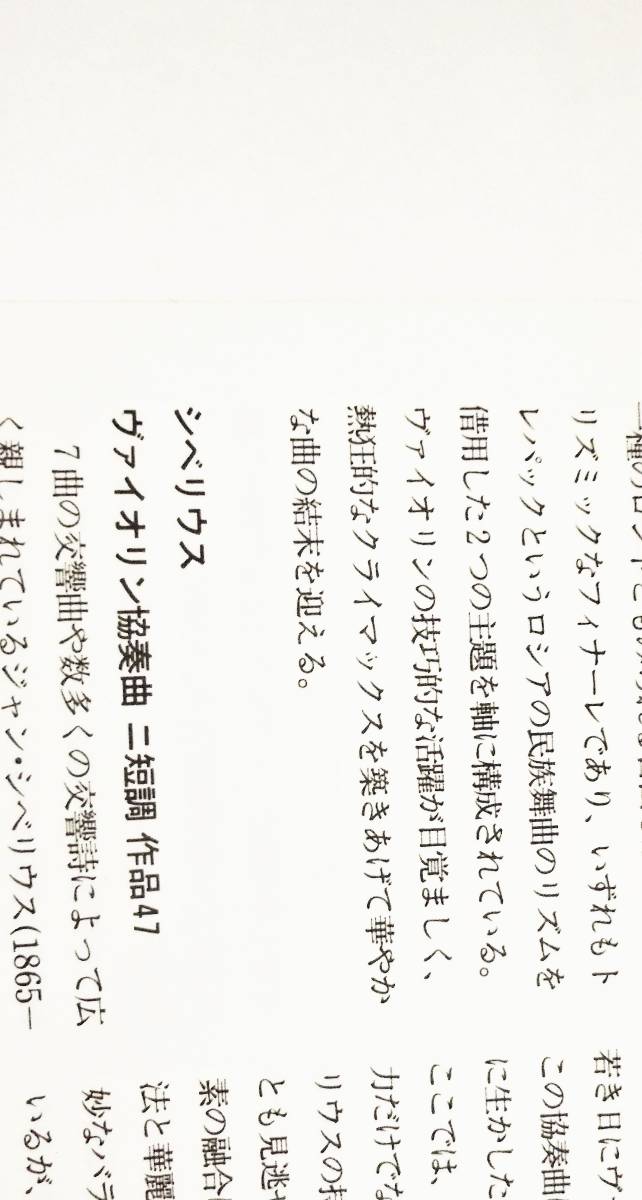 一種のロンドとも
リズミックなフィナーレであり、いずれもト
レパックというロシアの民族舞曲のリズムを
借用した2つの主題を軸に構成されている。
ヴァイオリンの技巧的な活躍が目覚ましく、
熱狂的なクライマックスを築きあげて華やか
な曲の結末を迎える。
シベリウス
ヴァイオリン協奏曲 ニ短調 作品47
7曲の交響曲や数多くの交響詩によって広
く親しまれているジャン・シベリウス(1865—
若き日にヴ
この協奏曲
に生かした
ここでは、
力だけでな
リウスの持
とも見逃せ
素の融合
法と華麗
妙なバラ
いるが、